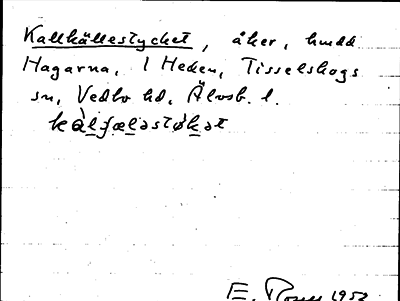 Kallkällestycket, åker, hmdd
Hagarna, 1 Heden, Tisselskogs
sn, Vedbo hd, Älvsb. l.
kàlʃæləstøkət
E. 1952